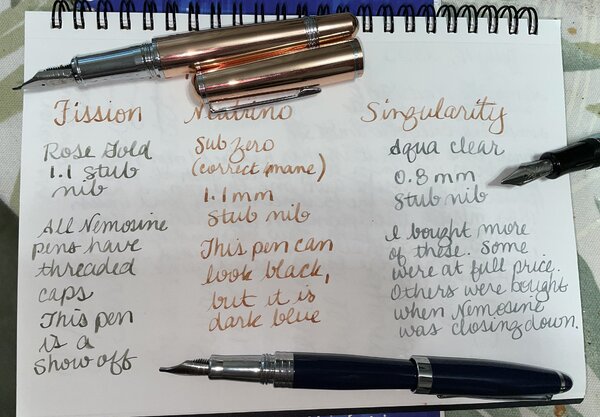 Fission
Rose Gold
1.1 stub
nib
All Nemosine
pens have
threaded
caps
This pen
is a
show off
Neutrino
Sub zero
(correct mane)
1.1mm
stub nib
This pen can
look black,
but it is
dark blue
Singularity
Aqua clear
0.8 mm
stub nib
I bought more
of these. Some
were at full price.
Others were bought
when Nemosine
was closing down.